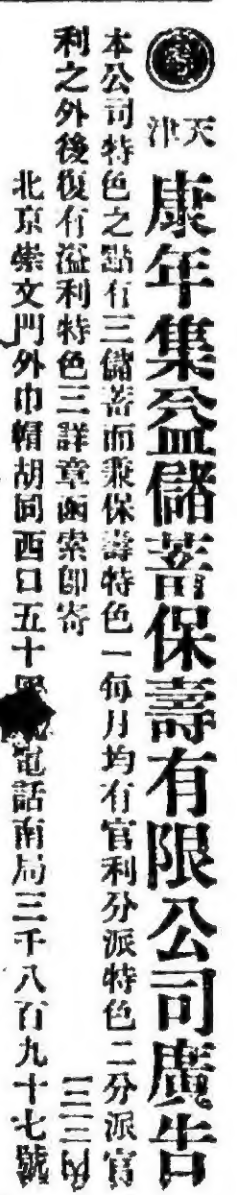 天津
康年集益儲蓄保壽有限公司廣告
本公司特色之點有三儲蓄而兼保壽特色一每月均有官利分派特色二分派官
利之外後復有溢利特色三詳章函索即寄
三三內
北京崇文門外巾帽胡同西口五十 電話南局三千八百九十七號